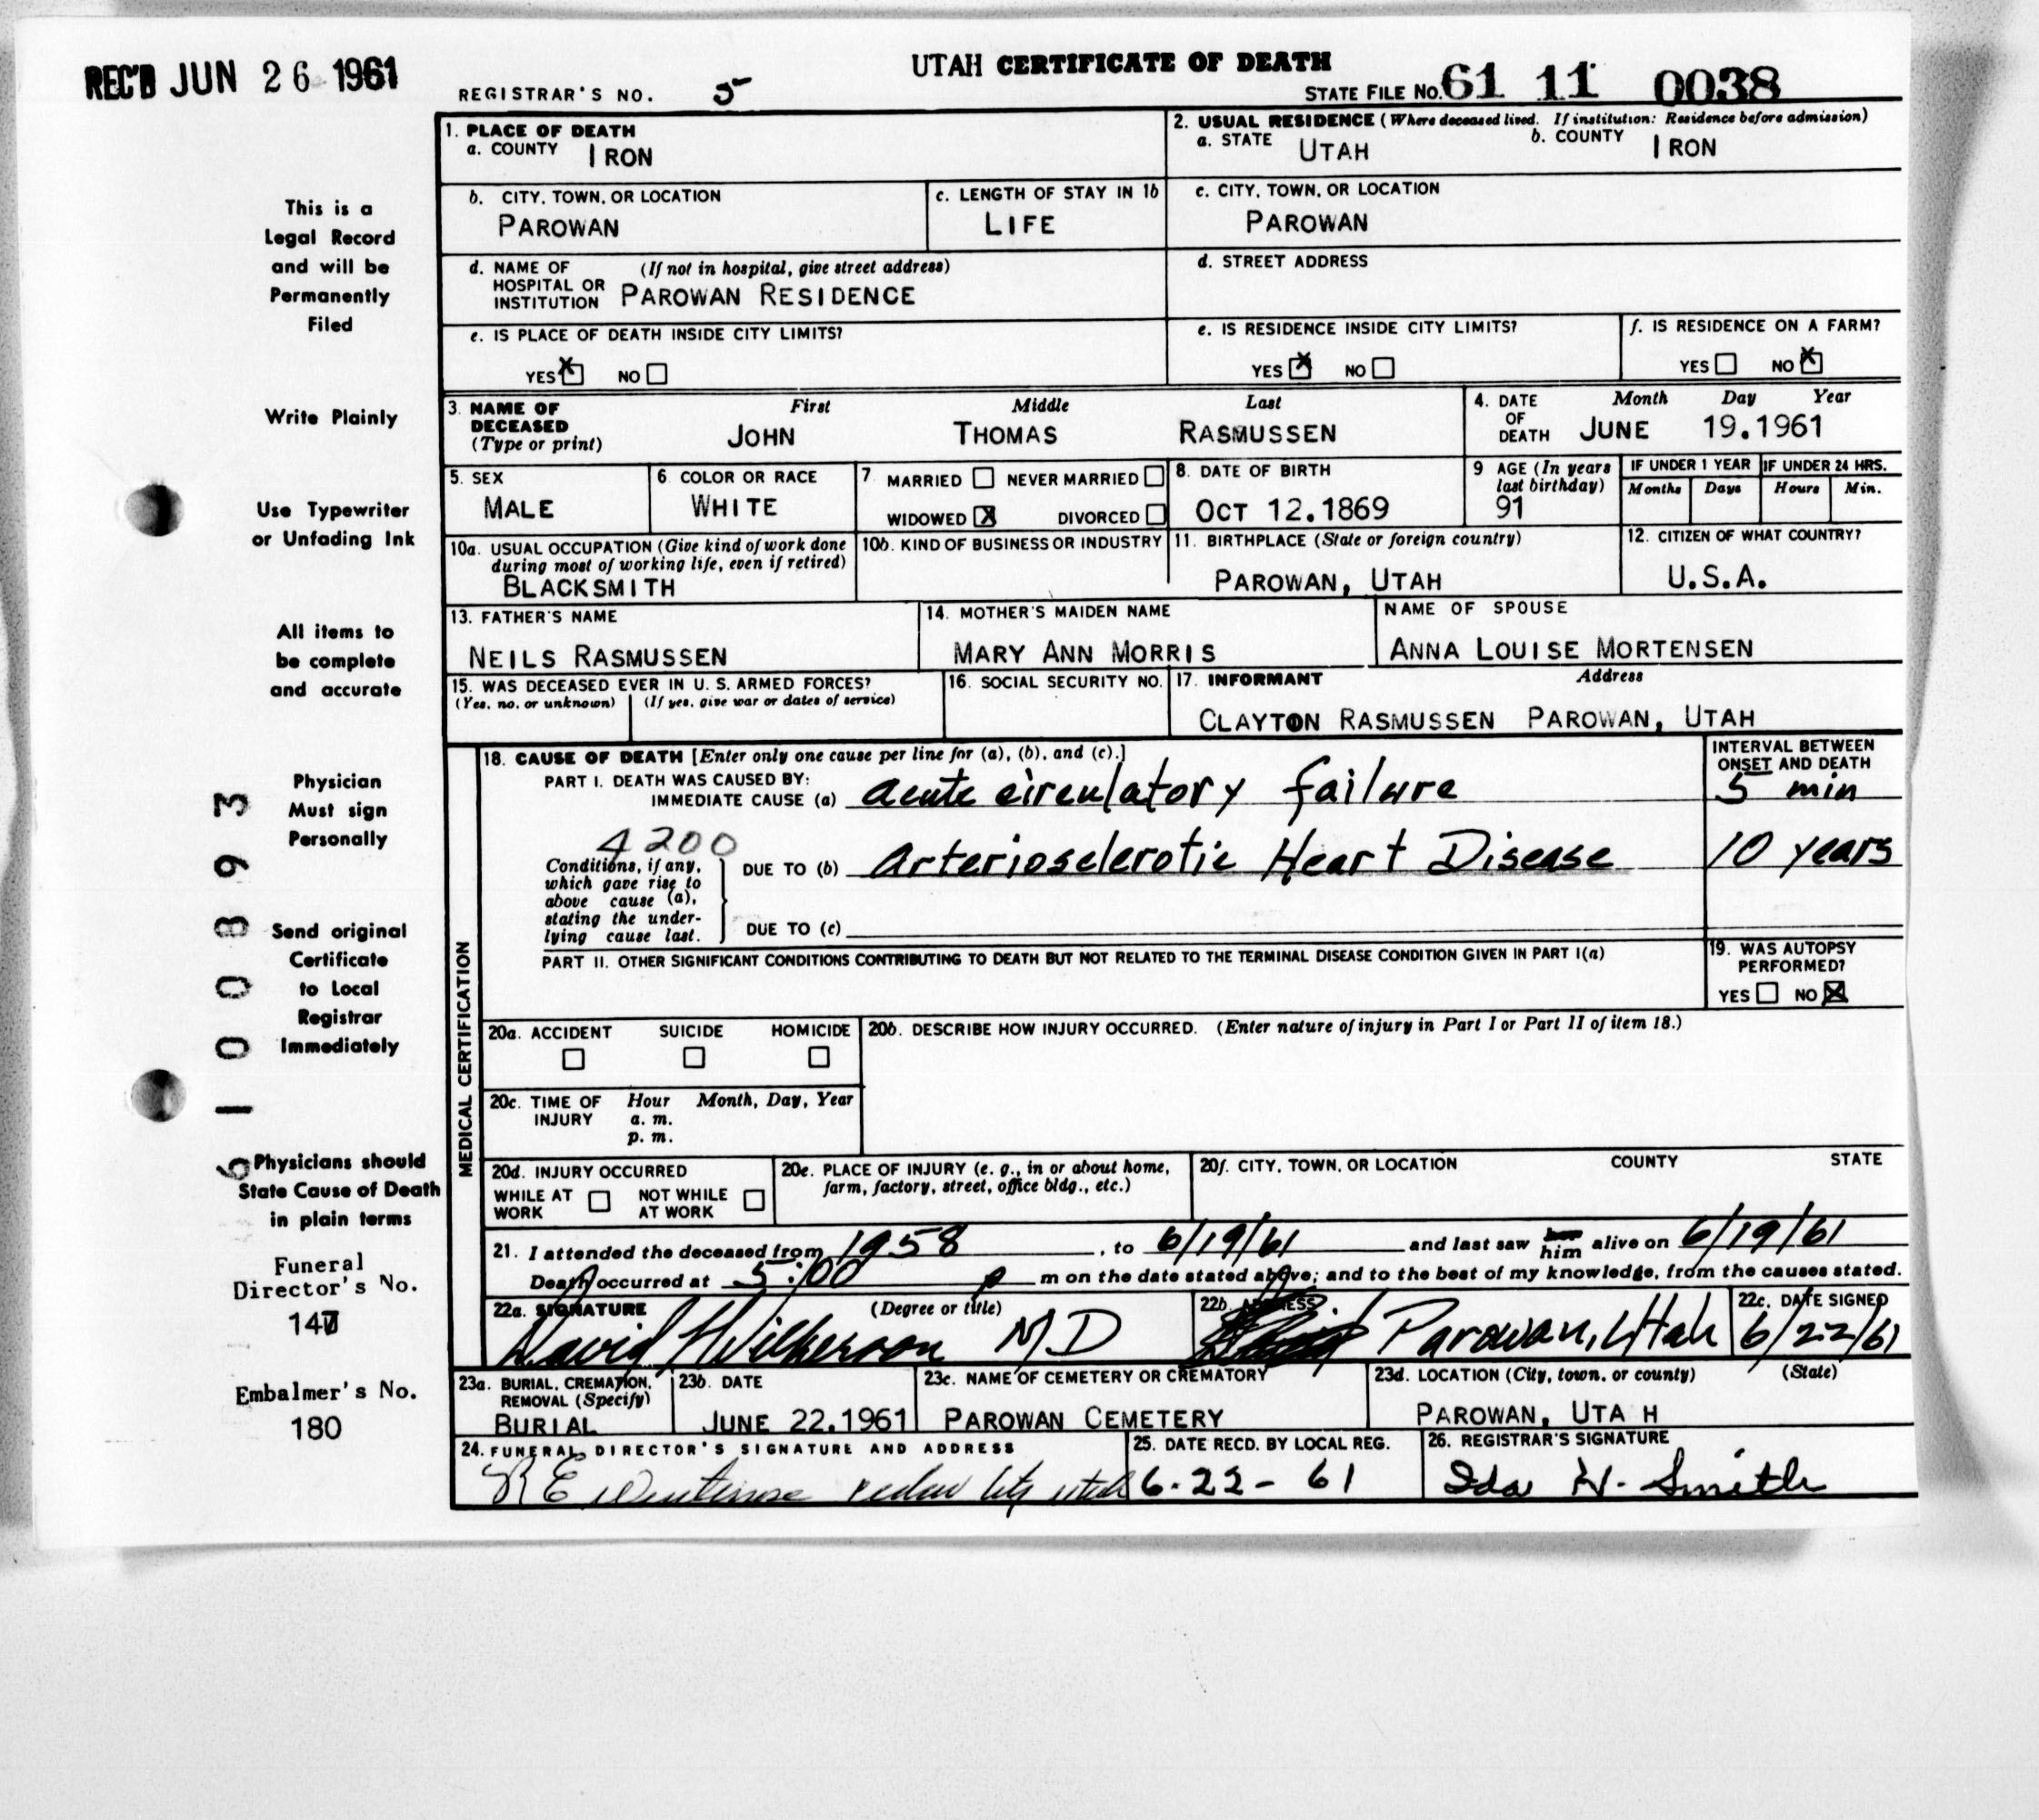 REC'D JUN 26 1961
UTAH CERTIFICATE OF DEATH
REGISTRAR'S NO. 5
STATE FILE NO. 61 11 0038
1. PLACE OF DEATH
a. COUNTY IRON
2. USUAL RESIDENCE (Where deceased lived. If institution: Residence before admission)
a. STATE UTAH b. COUNTY IRON
b. CITY, TOWN, OR LOCATION
PAROWAN
c. LENGTH OF STAY IN 1b
LIFE
c. CITY, TOWN, OR LOCATION
PAROWAN
d. NAME OF HOSPITAL OR INSTITUTION (If not in hospital, give street address)
PAROWAN RESIDENCE
d. STREET ADDRESS
e. IS PLACE OF DEATH INSIDE CITY LIMITS?
YES X NO
e. IS RESIDENCE INSIDE CITY LIMITS?
YES X NO
f. IS RESIDENCE ON A FARM?
YES NO X
3. NAME OF DECEASED (Type or print)
First Middle Last
JOHN THOMAS RASMUSSEN
4. DATE OF DEATH Month Day Year
JUNE 19.1961
5. SEX
MALE
6. COLOR OR RACE
WHITE
7 MARRIED NEVER MARRIED
WIDOWED X DIVORCED
8. DATE OF BIRTH
OCT 12.1869
9 AGE (In years last birthday)
91
IF UNDER 1 YEAR IF UNDER 24 HRS.
Months Days Hours Min.
10a. USUAL OCCUPATION (Give kind of work done during most of working life, even if retired)
BLACKSMITH
10b. KIND OF BUSINESS OR INDUSTRY
11. BIRTHPLACE (State or foreign country)
PAROWAN, UTAH
12. CITIZEN OF WHAT COUNTRY?
U.S.A.
13. FATHER'S NAME
NEILS RASMUSSEN
14. MOTHER'S MAIDEN NAME
MARY ANN MORRIS
NAME OF SPOUSE
ANNA LOUISE MORTENSEN
15. WAS DECEASED EVER IN U. S. ARMED FORCES?
(Yes, no, or unknown) (If yes, give war or dates of service)
16. SOCIAL SECURITY NO.
17. INFORMANT Address
CLAYTON RASMUSSEN PAROWAN, UTAH
MEDICAL CERTIFICATION
18. CAUSE OF DEATH [Enter only one cause per line for (a), (b), and (c).]
PART I. DEATH WAS CAUSED BY:
IMMEDIATE CAUSE (a) acute circulatory failure
INTERVAL BETWEEN ONSET AND DEATH
5 min
4200
Conditions, if any, which gave rise to above cause (a), stating the underlying cause last.
DUE TO (b) Arteriosclerotic Heart Disease
10 years
DUE TO (c)
PART II. OTHER SIGNIFICANT CONDITIONS CONTRIBUTING TO DEATH BUT NOT RELATED TO THE TERMINAL DISEASE CONDITION GIVEN IN PART I(a)
19. WAS AUTOPSY PERFORMED?
YES NO X
20a. ACCIDENT SUICIDE HOMICIDE
20b. DESCRIBE HOW INJURY OCCURRED. (Enter nature of injury in Part I or Part II of item 18.)
20c. TIME OF INJURY Hour Month, Day, Year
a. m.
p. m.
20d. INJURY OCCURRED
WHILE AT WORK NOT WHILE AT WORK
20e. PLACE OF INJURY (e. g., in or about home, farm, factory, street, office bldg., etc.)
20f. CITY, TOWN, OR LOCATION COUNTY STATE
21. I attended the deceased from 1958, to 6/19/61 and last saw her him alive on 6/19/61
Death occurred at 5:00 p m on the date stated above; and to the best of my knowledge, from the causes stated.
22a. SIGNATURE (Degree or title)
David Wilkerson MD
22b. ADDRESS
Parowan, Utah
22c. DATE SIGNED
6/22/61
23a. BURIAL, CREMATION, REMOVAL (Specify)
BURIAL
23b. DATE
JUNE 22.1961
23c. NAME OF CEMETERY OR CREMATORY
PAROWAN CEMETERY
23d. LOCATION (City, town, or county) (State)
PAROWAN, UTA H
24. FUNERAL DIRECTOR'S SIGNATURE AND ADDRESS
25. DATE RECD. BY LOCAL REG.
6-22-61
26. REGISTRAR'S SIGNATURE
Ida H. Smith
This is a
Legal Record
and will be
Permanently
Filed
Write Plainly
Use Typewriter
or Unfading Ink
All items to
be complete
and accurate
Physician
Must sign
Personally
Send original
Certificate
to Local
Registrar
Immediately
Physicians should
State Cause of Death
in plain terms
Funeral
Director's No.
147
Embalmer's No.
180
6 1 00893